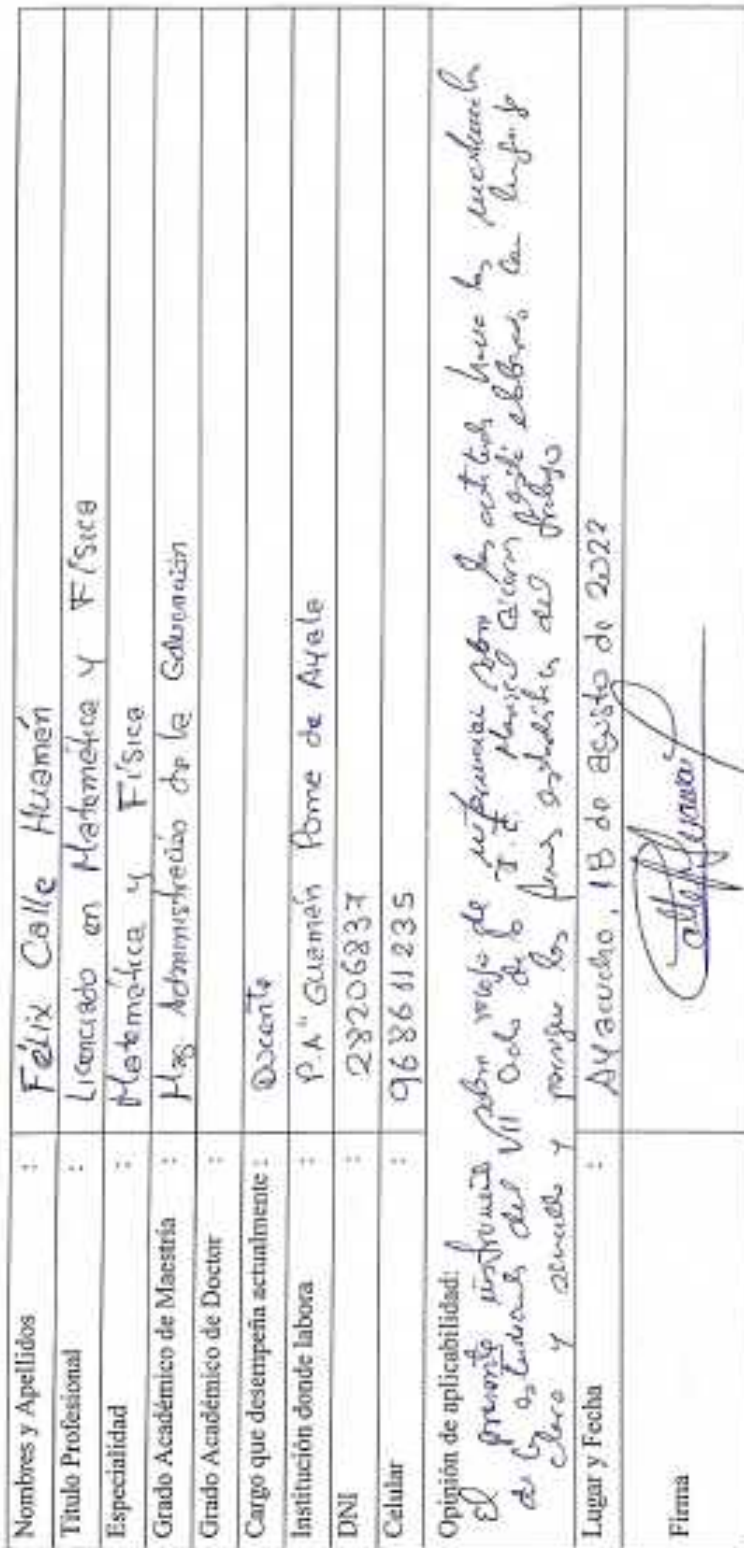 Nombres y Apellidos : Félix Calle Huamán
Título Profesional : Licenciado en Matemática y Física
Especialidad : Matemática y Física
Grado Académico de Maestría : Mag Administración de la Educación
Grado Académico de Doctor :
Cargo que desempeña actualmente : Docente
Institución donde labora : P.A" Guamán Poma de Ayala
DNI : 28206837
Celular : 968611235
Opinión de aplicabilidad:
El presente instrumento sobre de sobre las actitudes hacia las
de los estudiantes del VII ciclo de la I.E. está elaborado con lenguaje
claro y sencillo y los del trabajo
Lugar y Fecha : Ayacucho, 18 de agosto de 2022
Firma